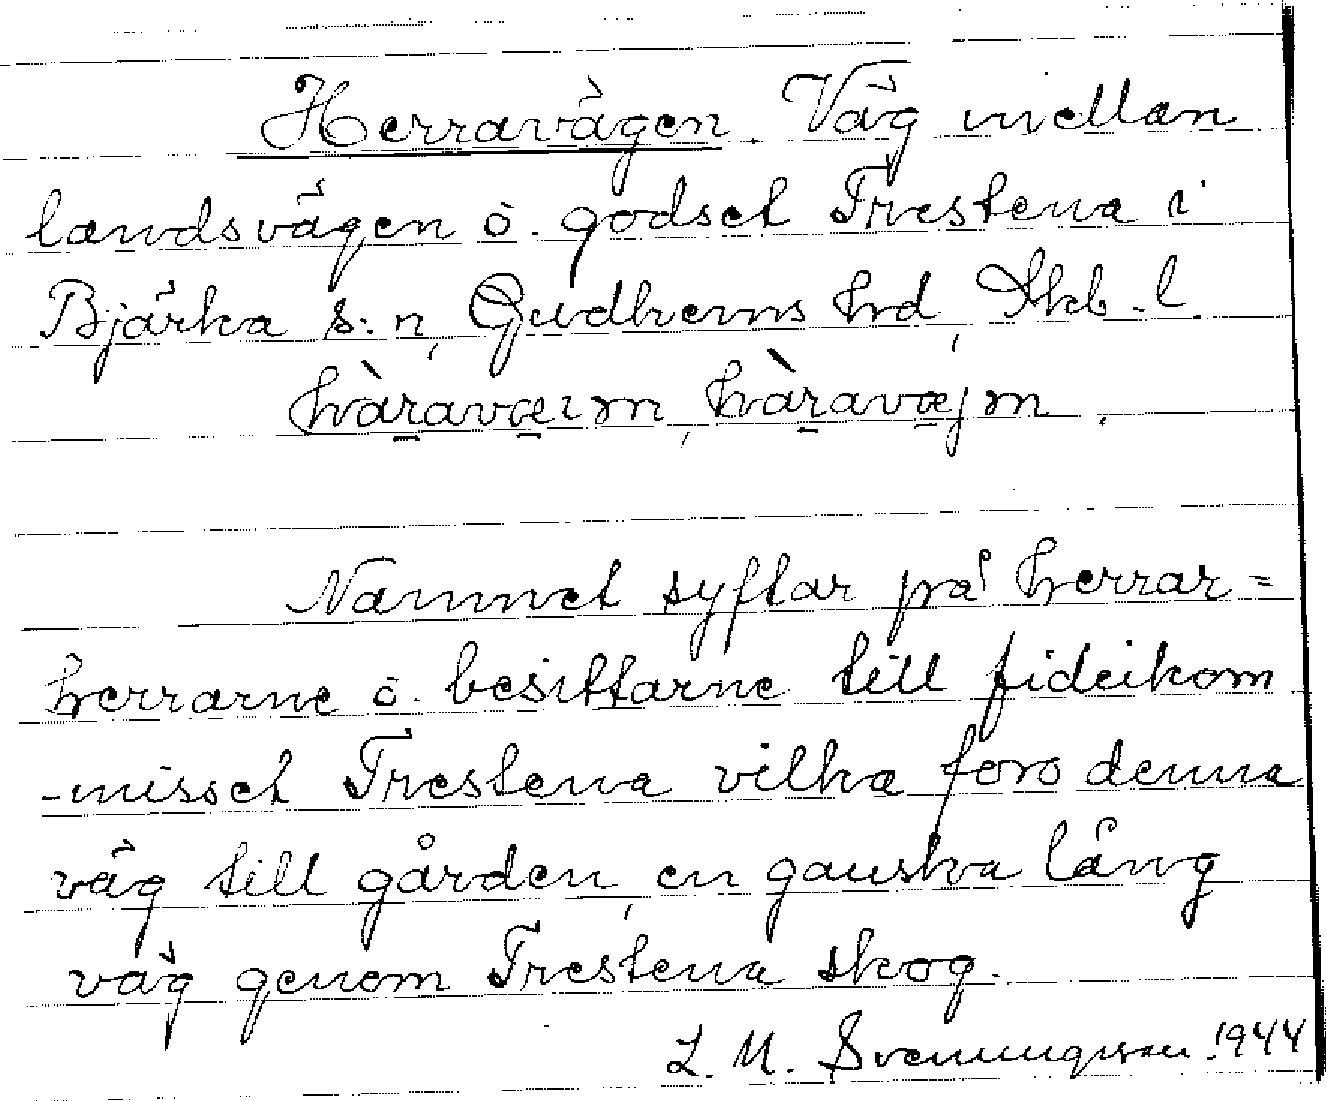 Herravägen. Väg mellan
landsvägen o. godset Trestena i
Bjärka s:n, Gudhems hd, Skb. l.
hàravæιm, hàravæjm.
Namnet syftar på herrar=
herrarne o. besittarne till fideikom
-misset Trestena vilka foro denna
väg till gården, en ganska lång
väg genom Trestena skog.
L. M. Svenungsson. 1944